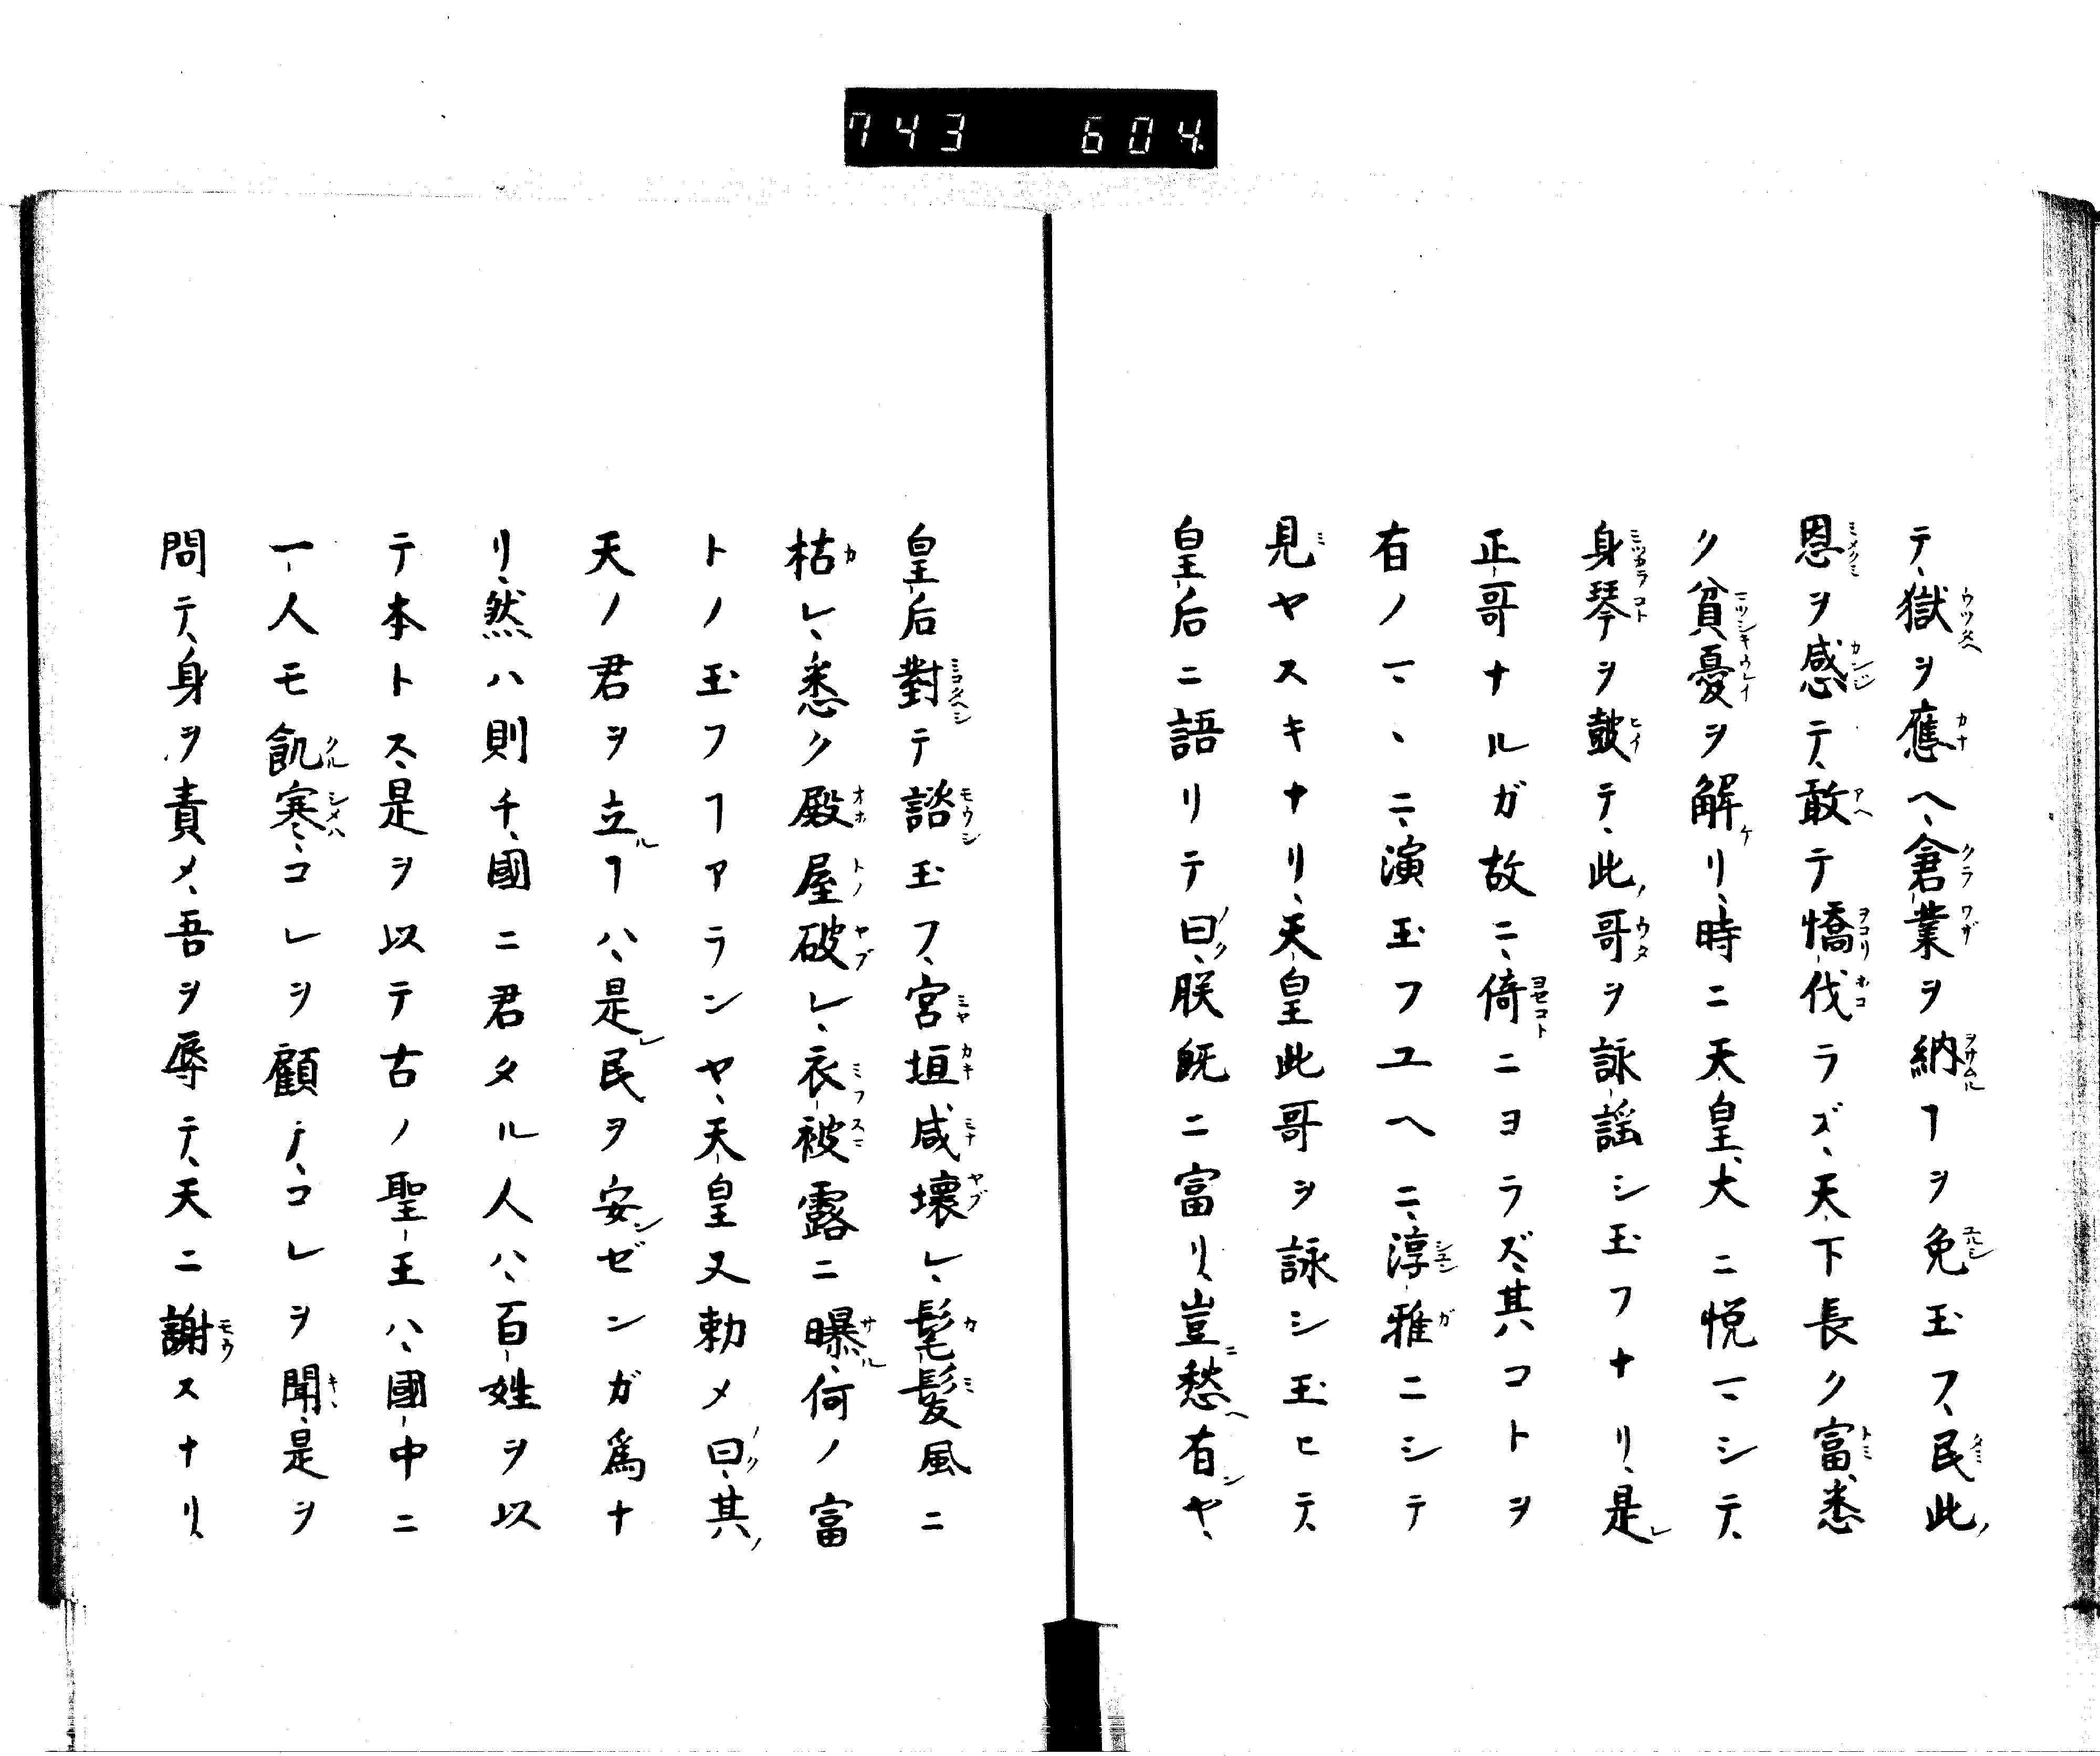 743 604
テ、獄ヲ應ヘ、倉業ヲ納ヿヲ免玉フ、民此ノ
恩ヲ感テ、敢テ憍伐ラズ、天下長ク富、悉
ク貧憂ヲ解リ、時ニ天皇、大ニ悦マシテ、
身琴ヲ皷テ、此ノ哥ヲ詠謡シ玉フナリ、是レ
正哥ナルガ故ニ、倚ニヨラズ、其ハコトヲ
有ノマヽニ、演玉フユヘニ、淳雅ニシテ
見ヤスキナリ、天皇此哥ヲ詠シ玉ヒテ、
皇后ニ語リテ曰ノク、朕既ニ富リ、豈ニ愁ヘ有ンヤ、
皇后對テ諮玉フ、宮垣咸壞レ、髦髮風ニ
枯レ、悉ク殿屋破レ、衣被露ニ曝ル、何ノ富
トノ玉フヿアランヤ、天皇又勅メ曰ノク、其ノ
天ノ君ヲ立ルヿハ、是レ民ヲ安ンゼンガ爲ナ
リ、然ハ則チ、國ニ君タル人ハ、百姓ヲ以
テ本トス、是ヲ以テ古ノ聖王ハ、國中ニ
一人モ飢寒、コレヲ顧テ、コレヲ聞、是ヲ
問テ、身ヲ責メ、吾ヲ辱テ、天ニ謝スナリ、